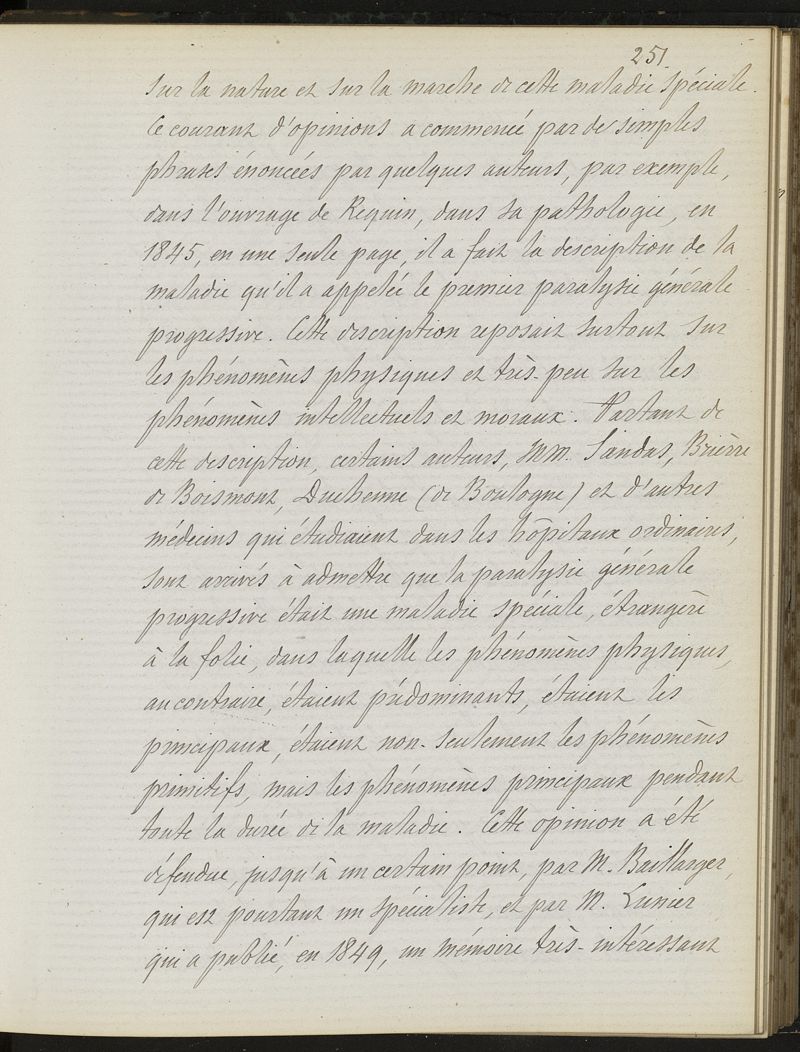 251
sur la nature et sur la marche de cette maladie spéciale.
Ce courant d'opinions a commencé par de simples
phrases énoncées par quelques auteurs, par exemple,
dans l'ouvrage de Requin, dans sa pathologie, en
1845, en une seule page, il a fait la description de la
maladie qu'il a appelée le premier paralysie générale
progressive. Cette description reposait surtout sur
les phénomènes physiques et très-peu sur les
phénomènes intellectuels et moraux. Partant de
cette description, certains auteurs, MM. Sandas, Brierre
de Boismont, Duchenne (de Boulogne) et d'autres
médecins qui étudiaient dans les hôpitaux ordinaires,
sont arrivés à admettre que la paralysie générale
progressive était une maladie spéciale, étrangère
à la folie, dans laquelle les phénomènes physiques,
au contraire, étaient prédominants, étaient les
principaux, étaient non-seulement les phénomènes
primitifs, mais les phénomènes principaux pendant
toute la durée de la maladie. Cette opinion a été
défendue, jusqu'à un certain point, par M. Baillarger,
qui est pourtant un spécialiste, et par M. Lunier
qui a publié, en 1849, un mémoire très-intéressant